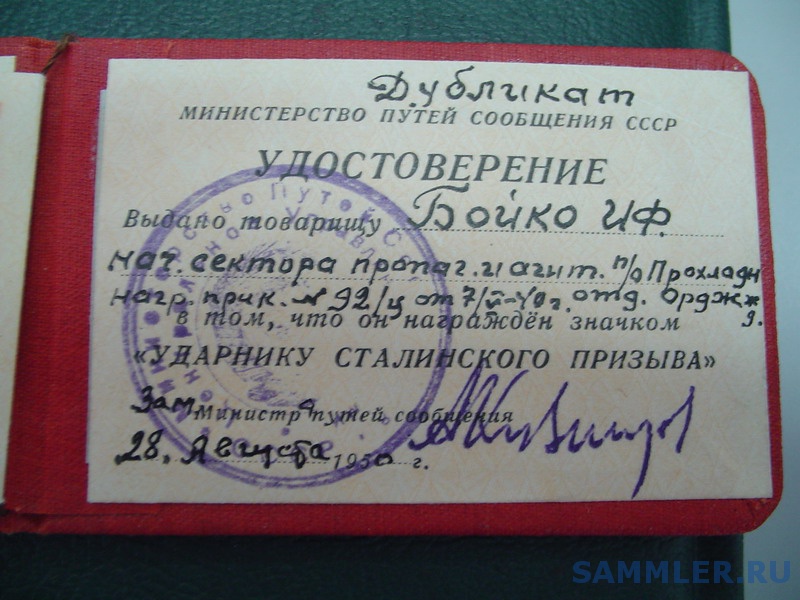 Дубликат
МИНИСТЕРСТВО ПУТЕЙ СООБЩЕНИЯ СССР
УДОСТОВЕРЕНИЕ
Выдано товарищу Бойко И.Ф.
нач. сектора пропаг. и агит. п/о Прохладн
нагр. прик. № 92/ц от 7/II-40г. отд. Орджж
в том, что он награждён значком д.
«УДАРНИКУ СТАЛИНСКОГО ПРИЗЫВА»
Зам Министра путей сообщения
28. Августа 1950 г.
SAMMLER.RU